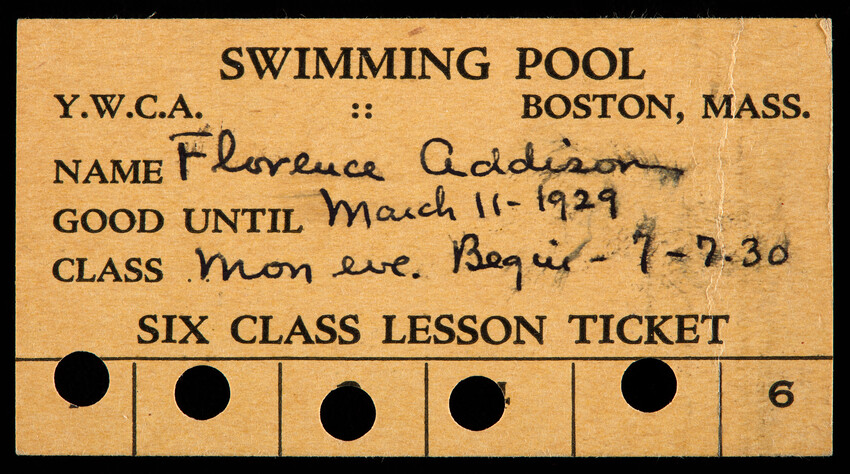 SWIMMING POOL
Y.W.C.A. :: BOSTON, MASS.
NAME Florence Addison
GOOD UNTIL March 11-1929
CLASS Mon eve. Begin - 7-7.30
SIX CLASS LESSON TICKET
6